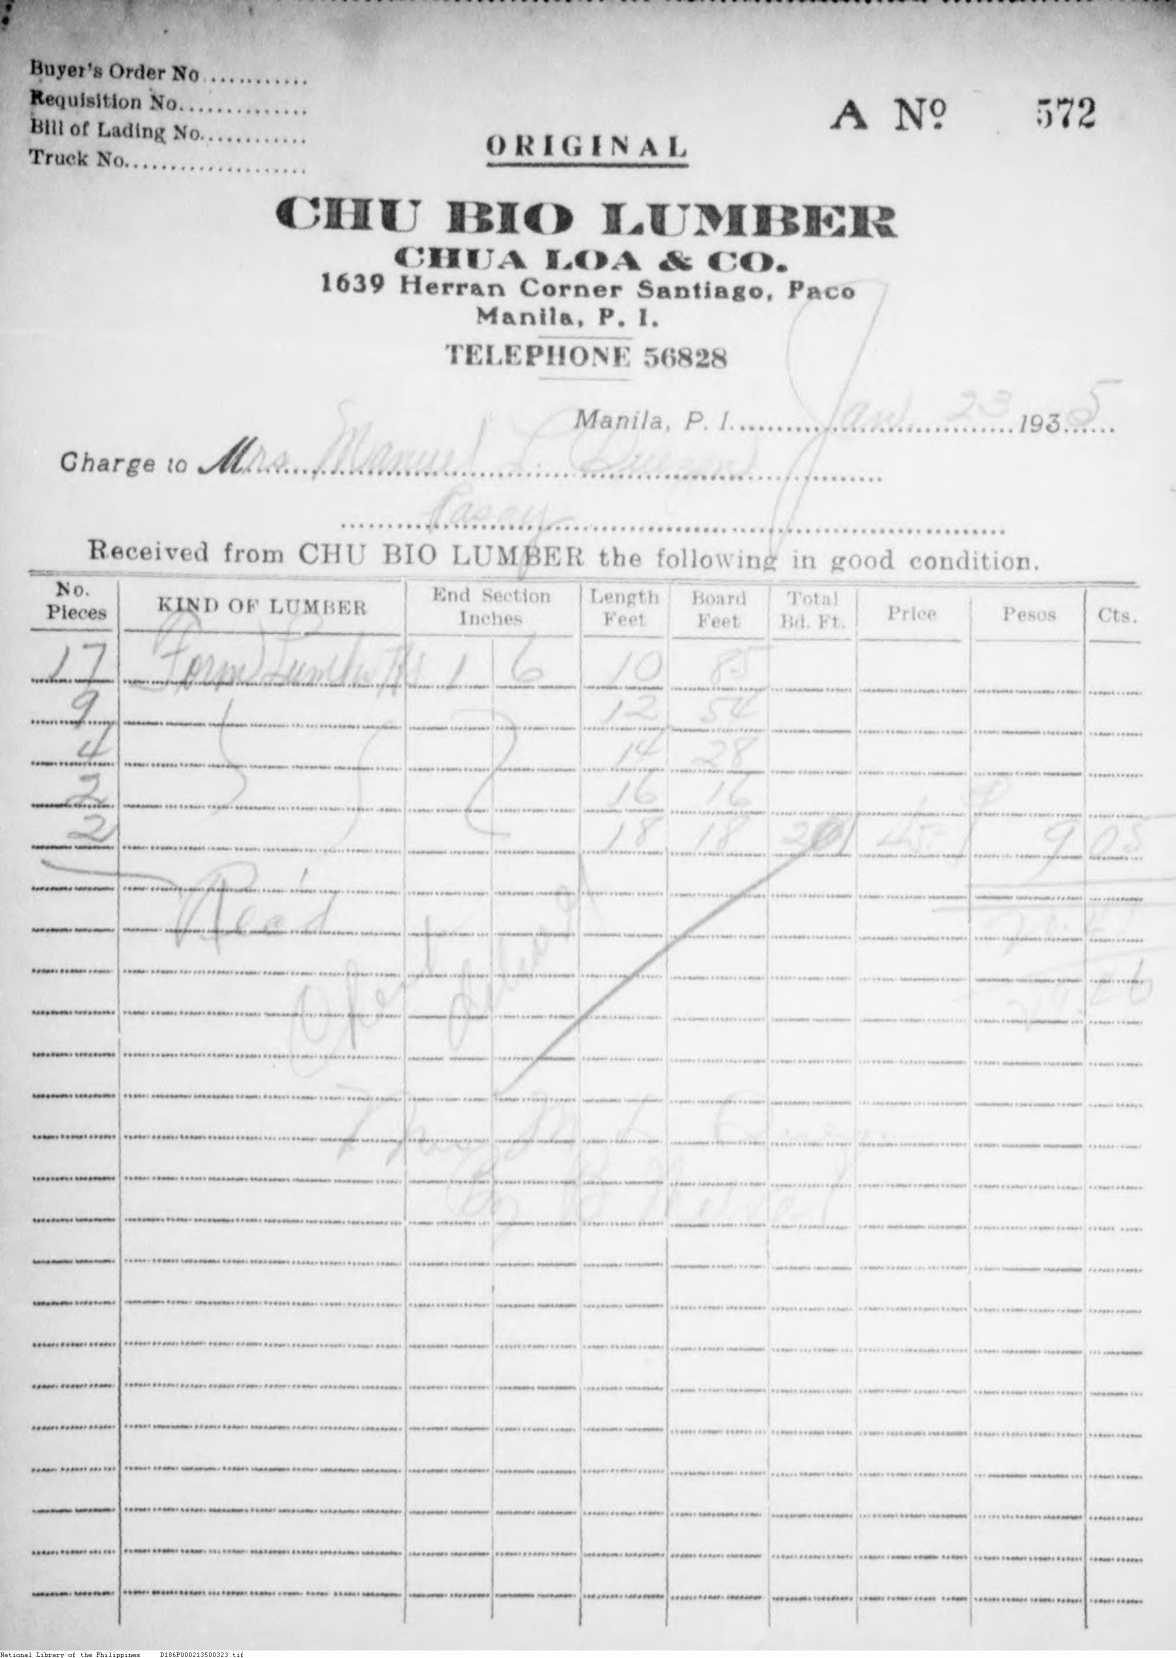 Buyer's Order No............
Requisition No..............
Bill of Lading No............
Truck No....................
A No 572
ORIGINAL
CHU BIO LUMBER
CHUA LOA & CO.
1639 Herran Corner Santiago, Paco
Manila, P. I.
TELEPHONE 56828
Manila, P. I. Jan. 23 1935
Charge to Mrs Manuel L.
Pasay
Received from CHU BIO LUMBER the following in good condition.
No. Pieces KIND OF LUMBER End Section Inches Length Feet Board Feet Total Bd. Ft. Price Pesos Cts.
17 Form Lumber 1 6 10 85
9 12 54
4 14 28
2 16 16
2 18 18 201 45 9 05
Rec'd
By
National Library of the Philippines D186P000213500323.tif